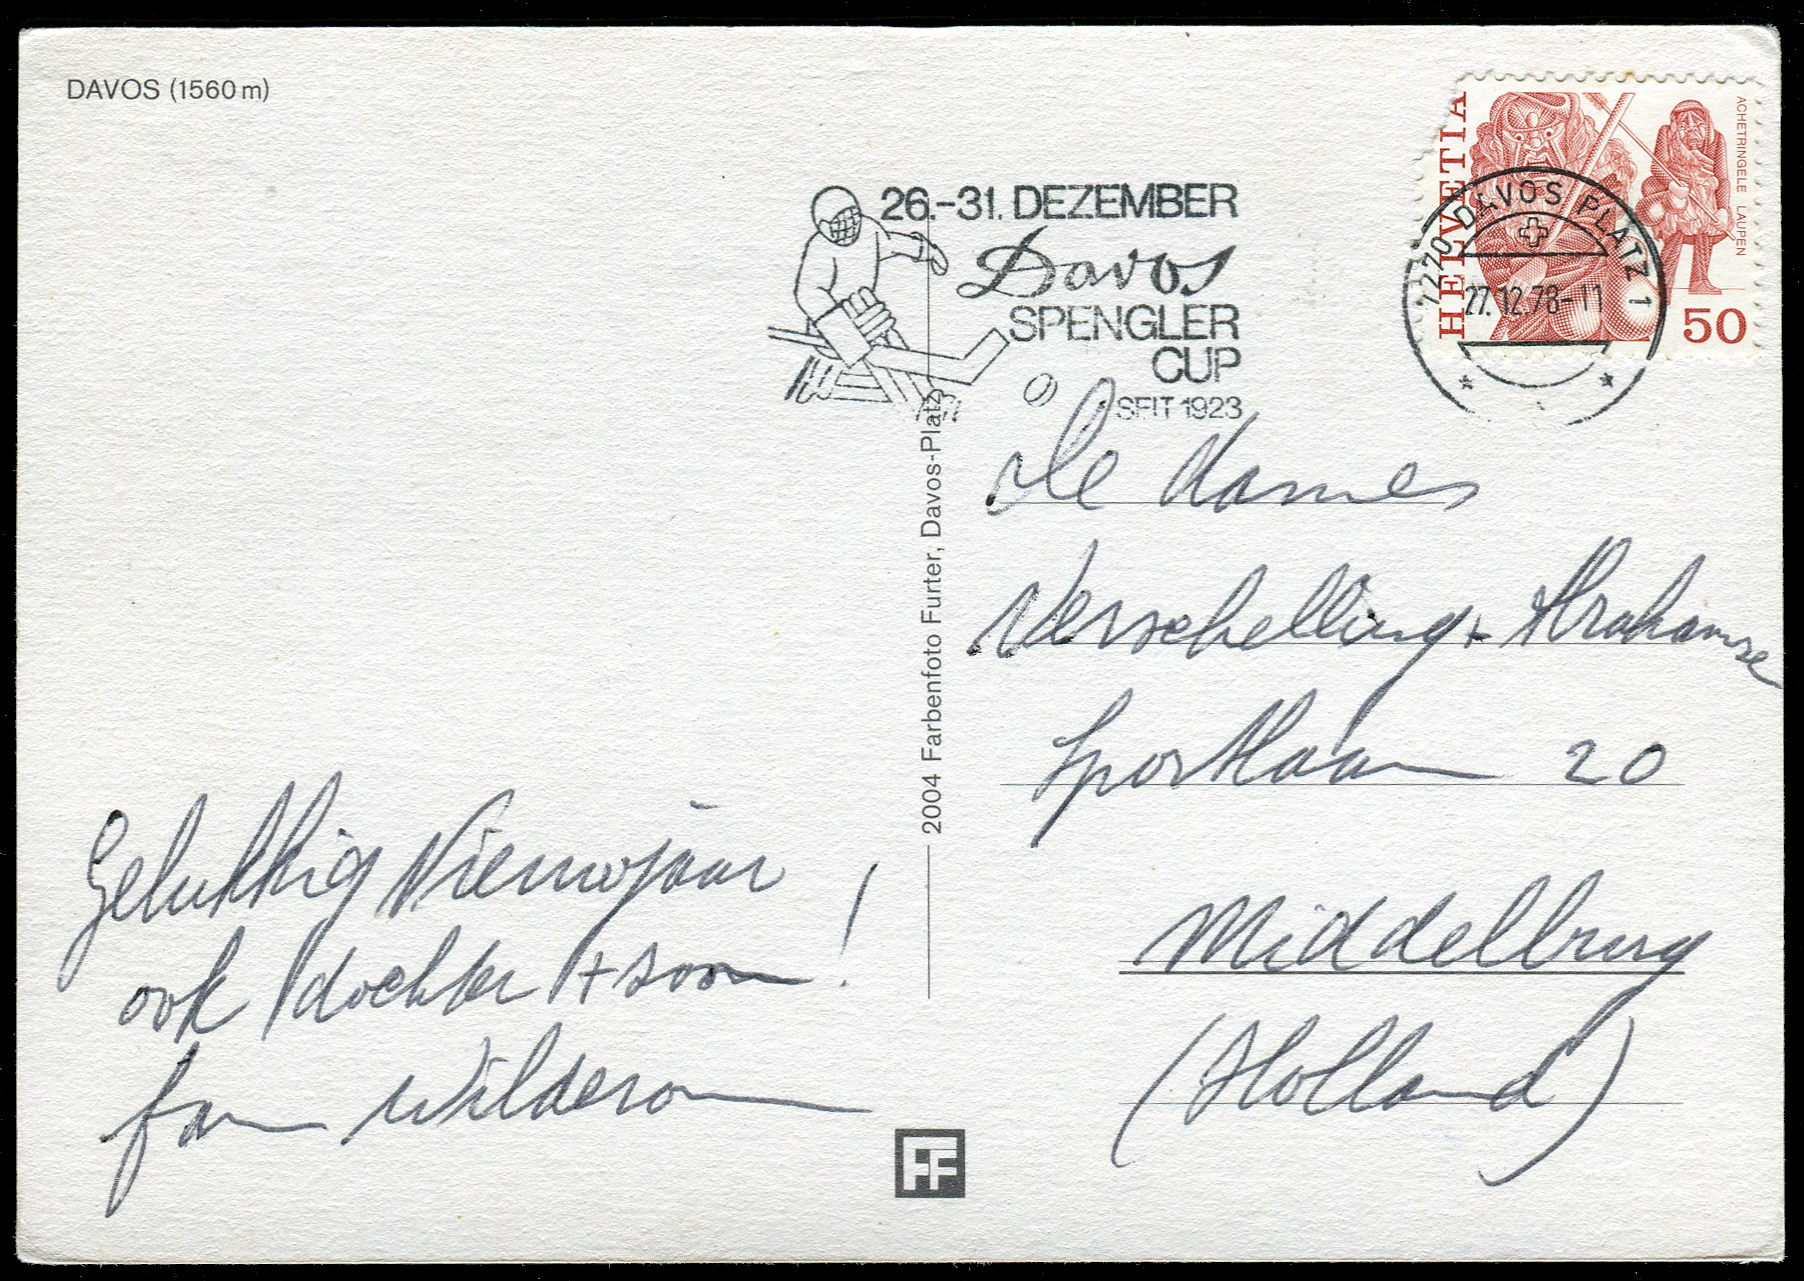 DAVOS (1560 m)
HELVETIA
ACHETRINGELE LAUPEN
50
7270 DAVOS PLATZ 1
27.12.78-11
26.-31. DEZEMBER
Davos
SPENGLER
CUP
SEIT 1923
2004 Farbenfoto Furter, Davos-Platz
De Dames
Verschelling + Abrahamse
Sportlaan 20
Middelburg
(Holland)
Gelukkig Nieuwjaar
ook dochter + zoon!
fam Wilderom
FF